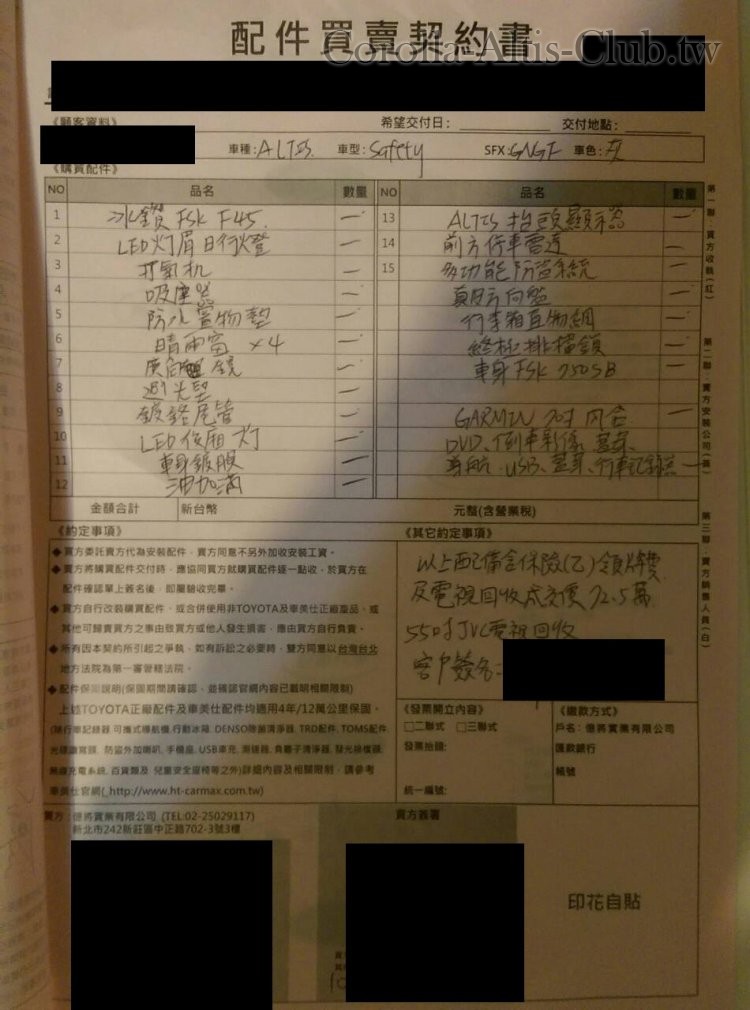 配件買賣契約書
Corolla-Altis-Club.tw
《顧客資料》 希望交付日: 交付地點:
車種:ALTIS 車型:Safety SFX:GNGF 車色:灰
《購買配件》
NO 品名 數量 NO 品名 數量
1 冰鑽 FSK F45. 一 13 ALTIS 抬頭顯示器 一
2 LED灯眉日行燈 一 14 前方停車雷達 一
3 打氣机 一 15 多功能防盜系統 一
4 吸塵器 一 真皮方向盤 一
5 防水置物墊 一 行李箱置物網 一
6 晴雨窗 x4 一 終極排檔鎖 一
7 廣角 鏡 一 車身FSK 750SB 一
8 遮光墊 一
9 鍍鉻尾管 一 GARMIN 內含 一
10 LED後廂灯 一 DVD、倒車影像、藍芽、
11 車身鍍膜 一 導航、USB、藍芽、行車記錄器 一
12 油加滿 一
金額合計 新台幣 元整(含營業稅)
《約定事項》 《其它約定事項》
◆買方委託賣方代為安裝配件,賣方同意不另外加收安裝工資。
◆賣方將購買配件交付時,應協同買方就購買配件逐一點收,於買方在
配件確認單上簽名後,即屬驗收完畢。
◆買方自行改裝購買配件,或合併使用非TOYOTA及車美仕正廠產品,或
其他可歸責買方之事由致買方或他人發生損害,應由買方自行負責。
◆所有因本契約所引起之爭執,如有訴訟之必要時,雙方同意以台灣台北
地方法院為第一審管轄法院。
◆配件保固說明(保固期間請確認,並確認官網內容已載明相關限制)
上述TOYOTA正廠配件及車美仕配件均適用4年/12萬公里保固。
(除行車記錄器,可攜式導航機,行動冰箱,DENSO除菌清淨器,TRD配件,TOMS配件
防盜外加喇叭,手機座,USB車充,測速器,負離子清淨器,發光排檔頭
無線充電系統,百貨類及 兒童安全座椅等之外)詳細內容及相關限制,請參考
車美仕官網(http://www.ht-carmax.com.tw)
以上配備含保險(乙)領牌費
及電視回收成交價 72.5萬
55吋JVC電視回收
客戶簽名:
《發票開立內容》 《繳款方式》
□二聯式 □三聯式 戶名:億將實業有限公司
發票抬頭: 匯款銀行
帳號
統一編號:
賣方:億將實業有限公司 (TEL:02-25029117) 買方簽署
新北市242新莊區中正路702-3號3樓
印花自貼
第一聯:買方收執(紅)
第二聯:賣方安裝公司(黃)
第三聯:賣方銷售人員(白)